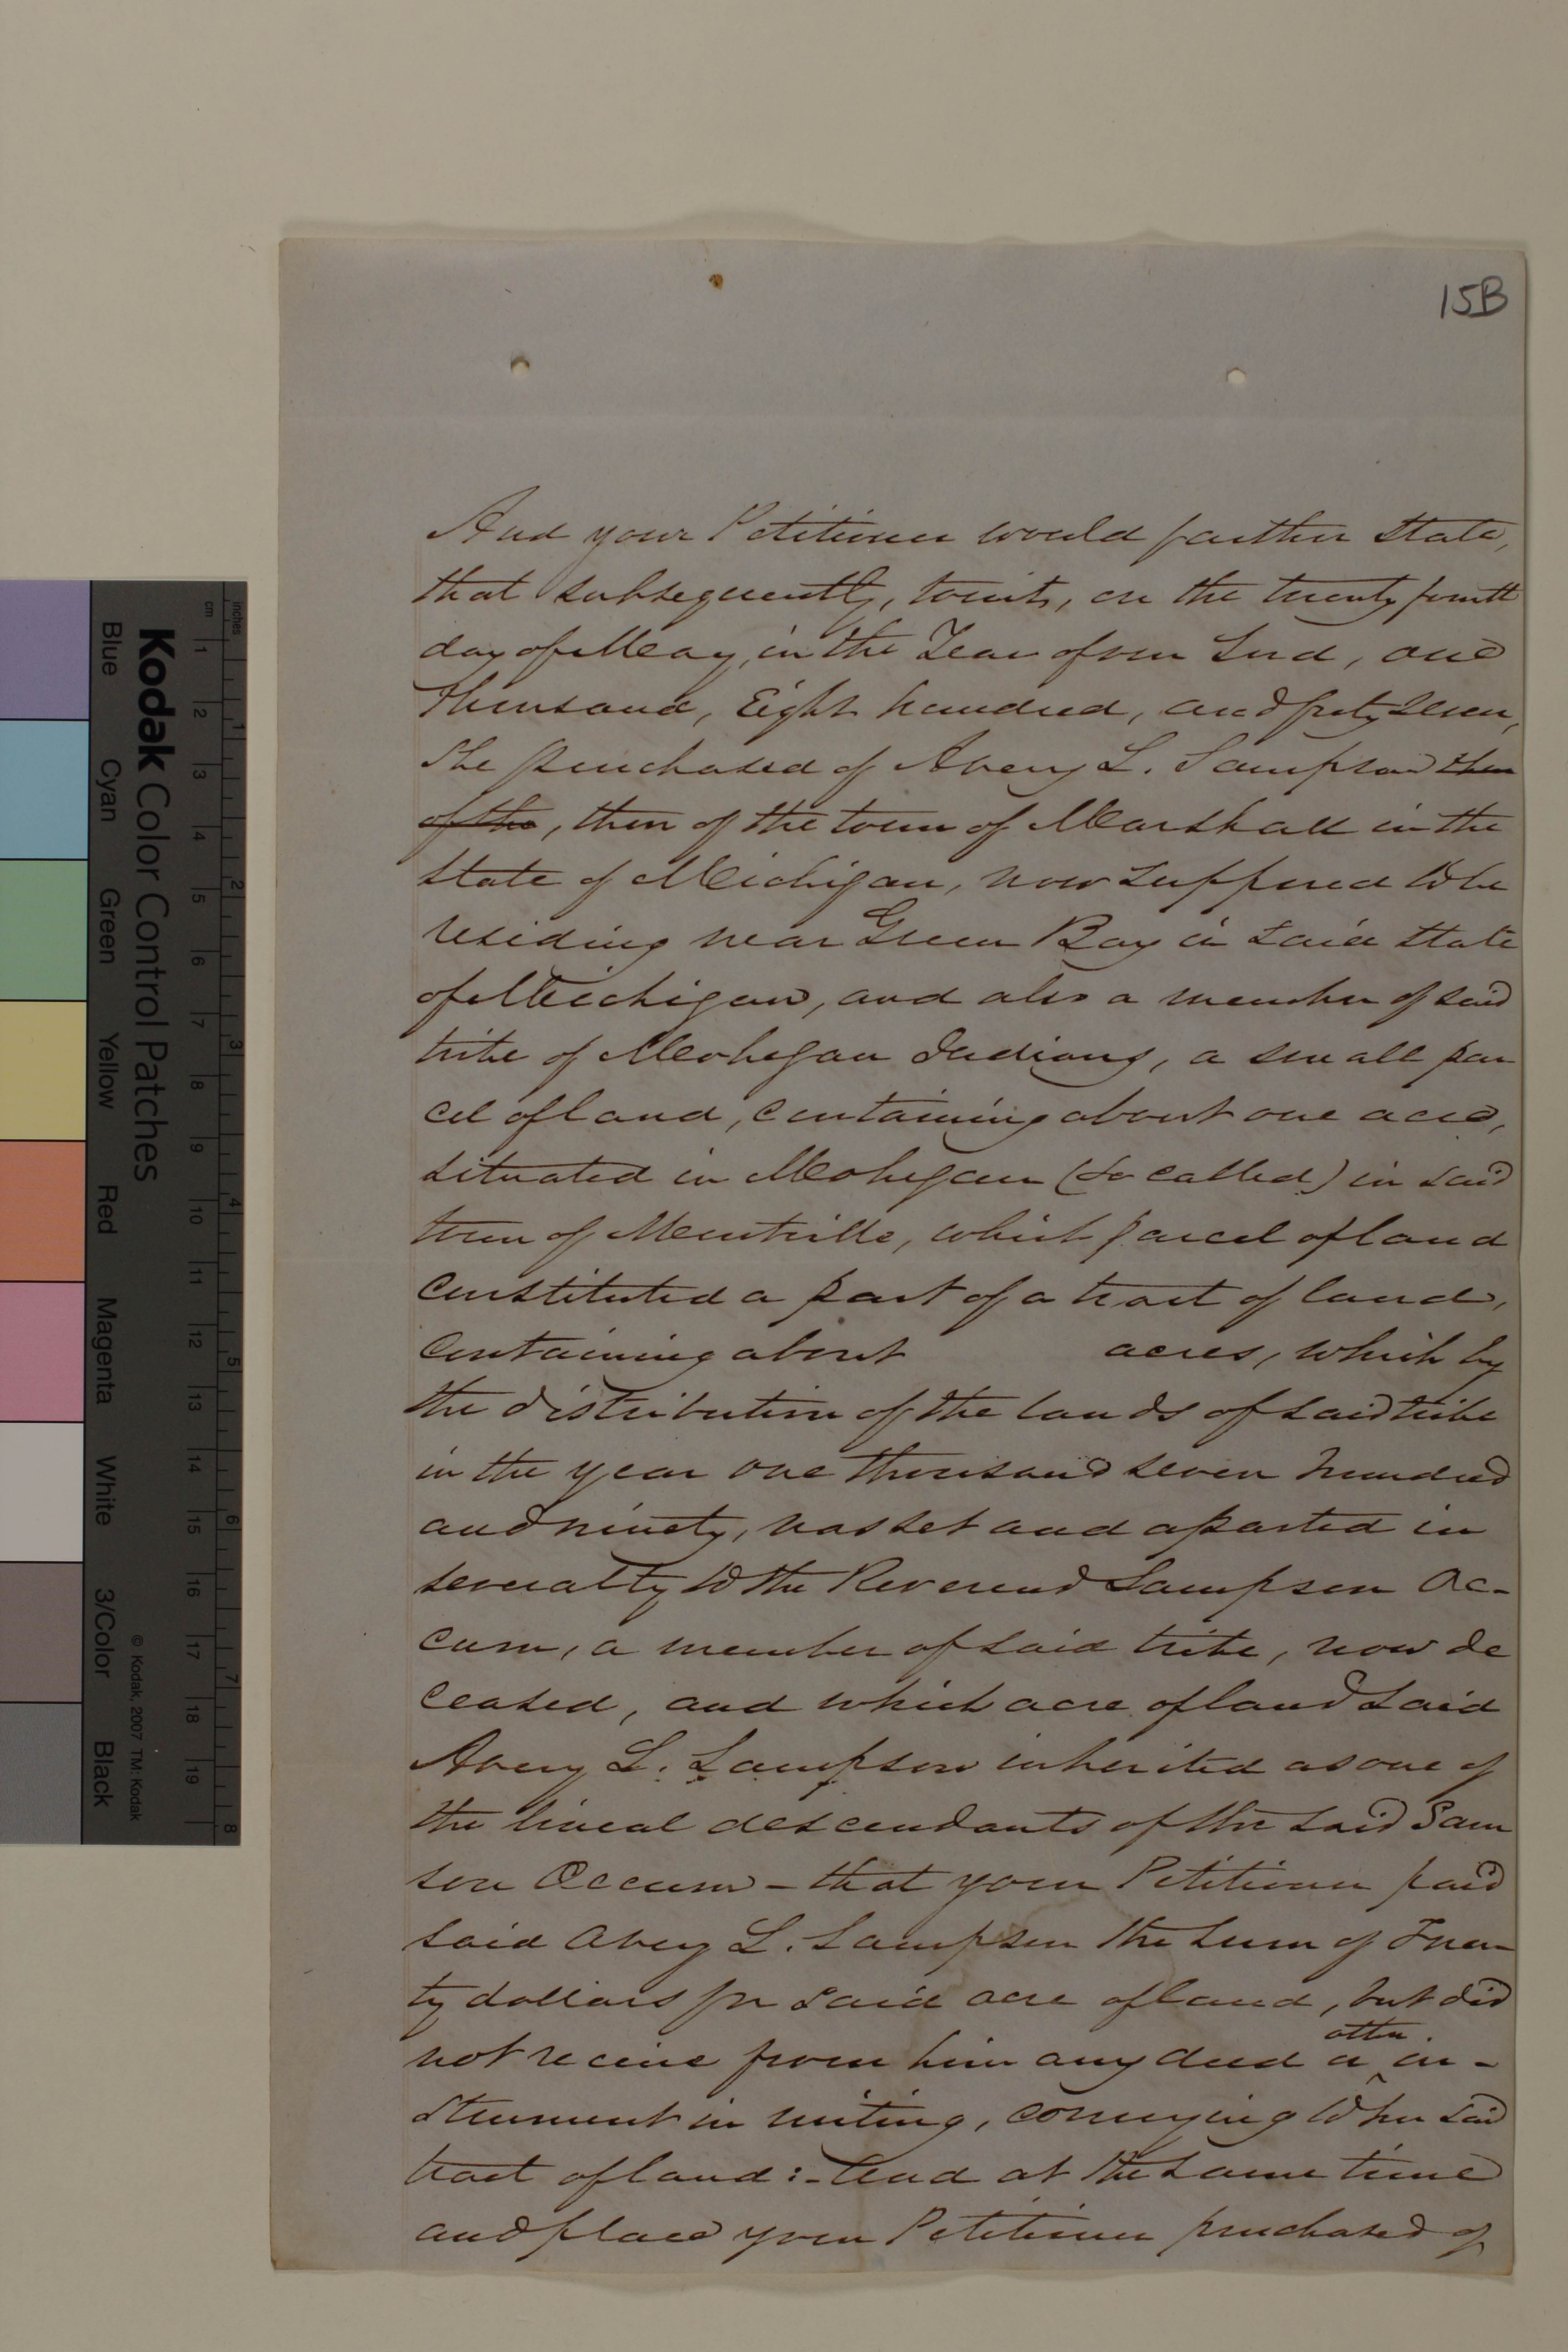 15B
And your Petitioner would further state,
that subsequently, towit, on the twenty fourth
day of May, in the Year of our Lord, one
thousand, Eight hundred, and forty seven,
She purchased of Avery L. Sampson then
of the, then of the town of Marshall in the
State of Michigan, now supposed to be
residing near Green Bay in said State
of Michigan, and also a member of said
tribe of Mohegan Indians, a small par
cel of land, containing about one acre,
situated in Mohegan (so called) in said
town of Montville, which parcel of land
constituted a part of a tract of land,
containing about acres, which by
the distribution of the lands of said tribe
in the year one thousand seven hundred
and ninety, was set and aparted in
severalty to the Reverend Sampson Oc-
cum, a member of said tribe, now de
ceased, and which acre of land said
Avery L. Sampson inherited as one of
the lineal descendants of the said Sam
son Occum - that your Petitioner paid
said Avery L. Sampson the sum of Twen
ty dollars for said acre of land, but did
other
not receive from him any deed or in-
strument in writing, conveying to her said
tract of land :- And at the same time
and place your Petitioner purchased of
Kodak Color Control Patches
Blue Cyan Green Yellow Red Magenta White 3/Color Black
© Kodak, 2007 TM: Kodak
cm 1 2 3 4 5 6 7 8 9 10 11 12 13 14 15 16 17 18 19
inches 1 2 3 4 5 6 7 8